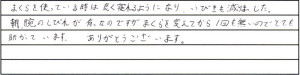 まくらを使っている時は良く寝えるようになり、いびきも減体した。
朝、腕のしびれが有ったのですがまくらを変えてから1回も無いのでとても
助かっています。 ありがとうございます。